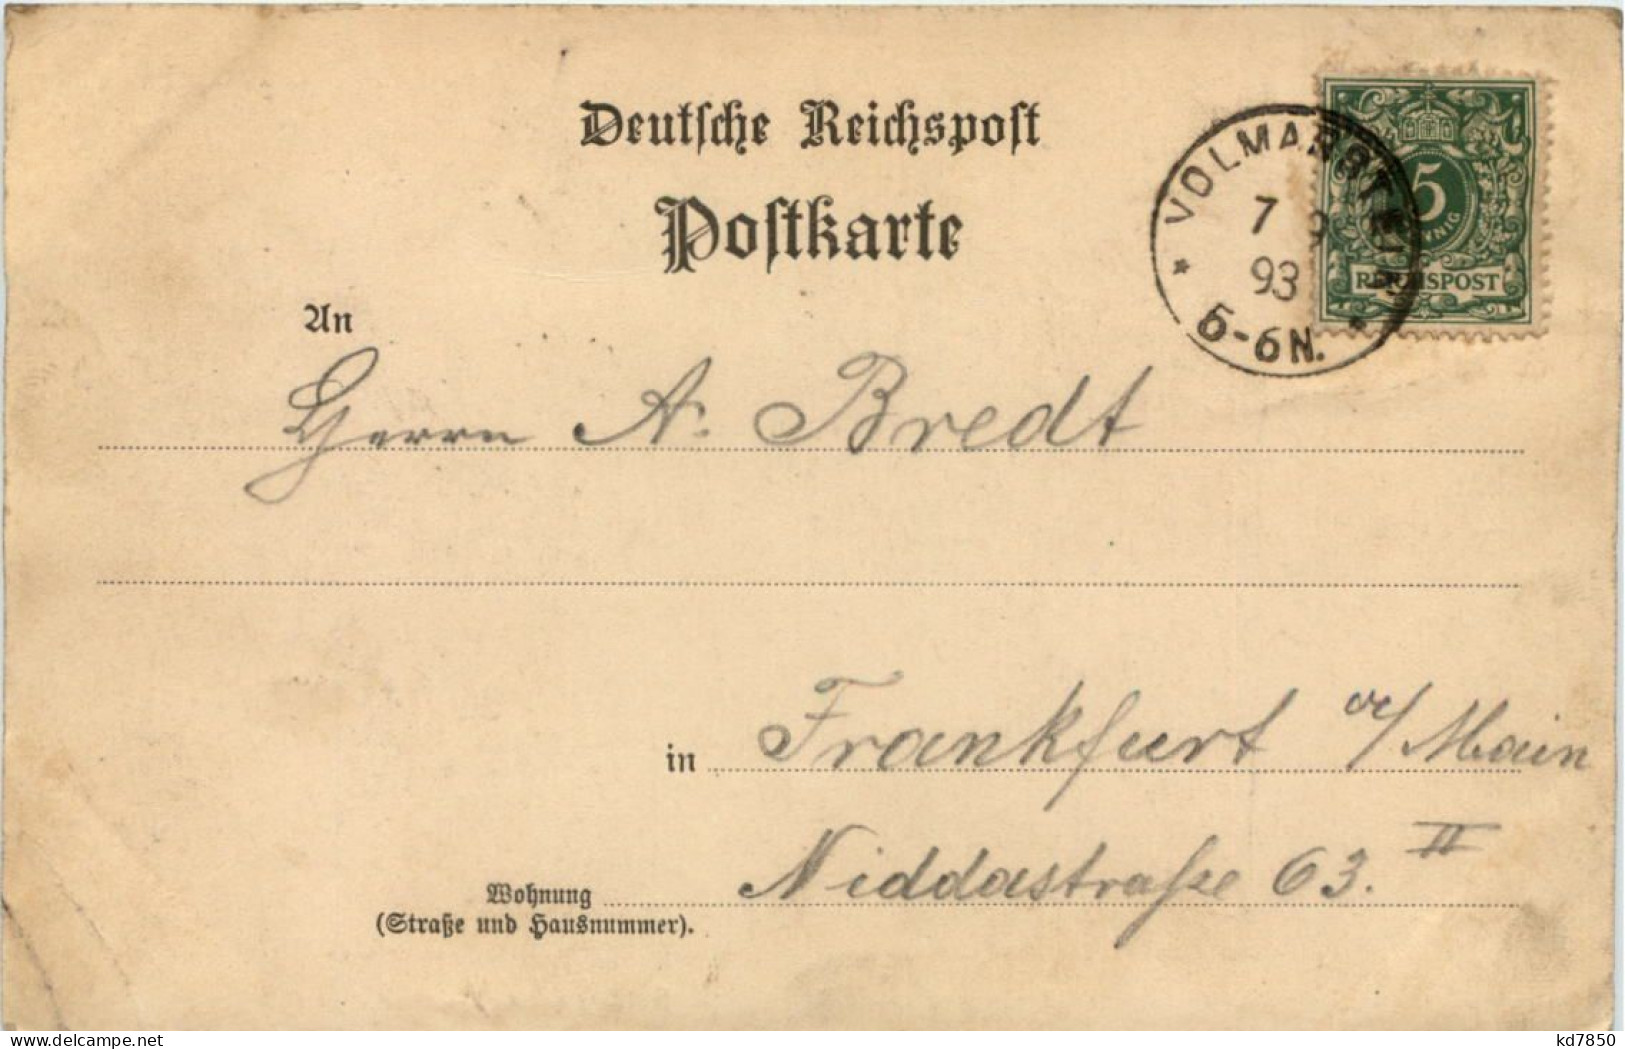 Deutsche Reichspost
Postkarte
VOLMARSTEIN
7 9
93
5-6N.
5
PFENNIG
REICHSPOST
An
Herrn A. Bredt
in Frankfurt a/Main
Wohnung Niddastraße 63. II
(Straße und Hausnummer).
www.delcampe.net
kd7850